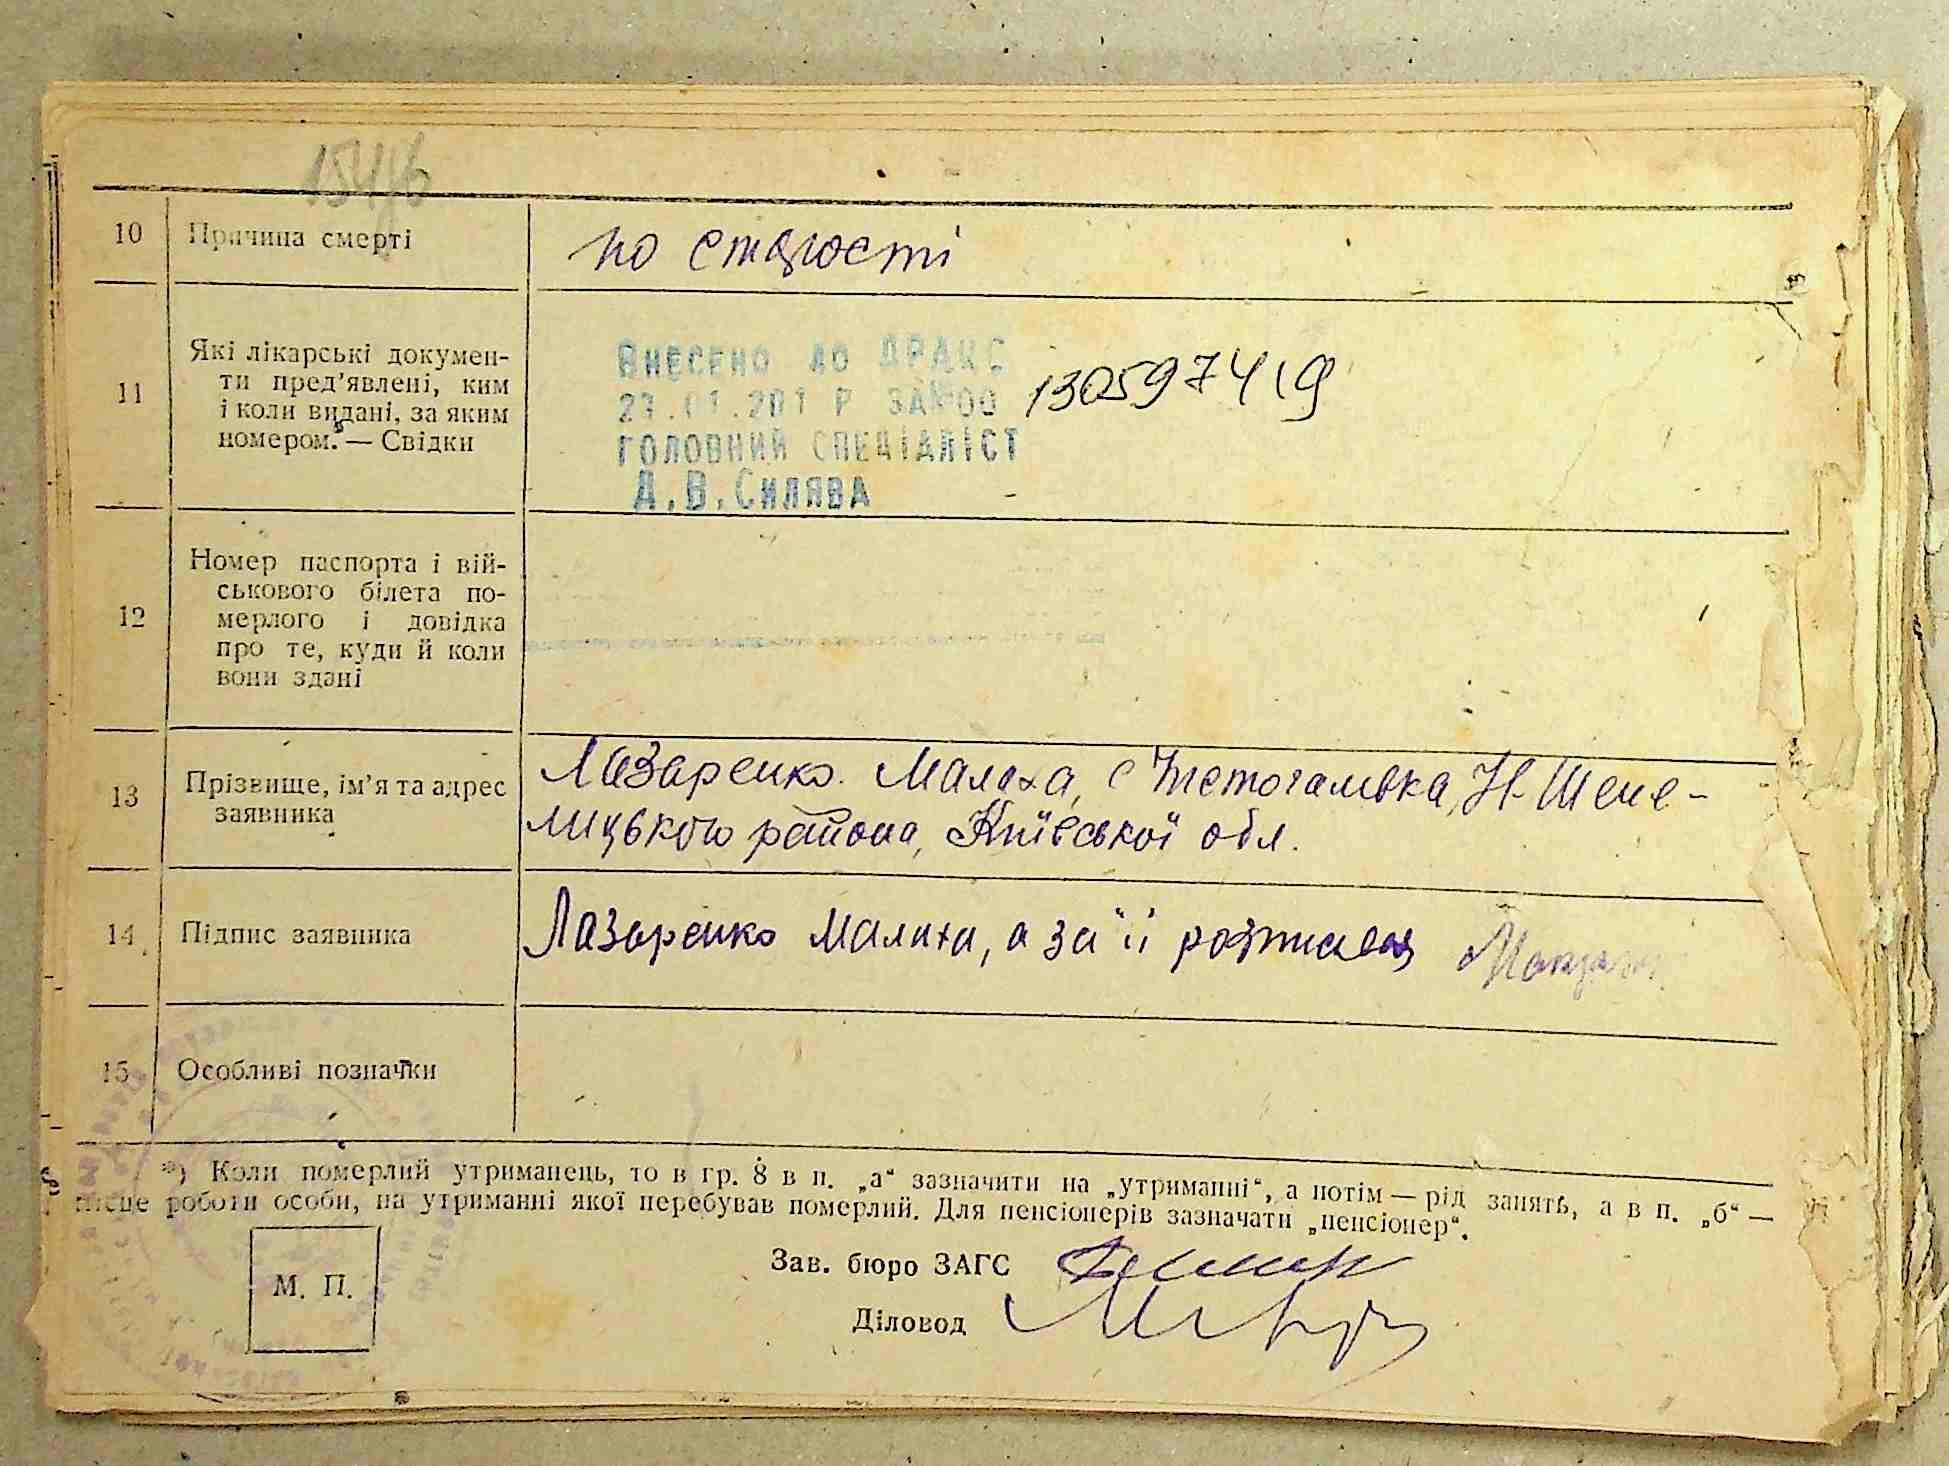 10 Причина смерті по старості
11 Які лікарські докумен-
ти пред'явлені, ким
і коли видані, за яким
номером. — Свідки
Внесено до ДРАЦС
Р ЗА №00 130597419
головний спеціаліст
Д.В.Силява
12 Номер паспорта і вій-
ськового білета по-
мерлого і довідка
про те, куди й коли
вони здані
13 Прізвище, ім'я та адрес
заявника
Лазаренко Малаха, с Н-Шепе-
лицького района, Київської обл.
14 Підпис заявника Лазаренко Малаха, а за її розписався
15 Особливі позначки
*) Коли померлий утриманець, то в гр. 8 в п. „а“ зазначити на „утриманні“, а потім — рід занять, а в п. „б“ —
місце роботи особи, на утриманні якої перебував померлий. Для пенсіонерів зазначати „пенсіонер“.
М. П.
Зав. бюро ЗАГС
Діловод